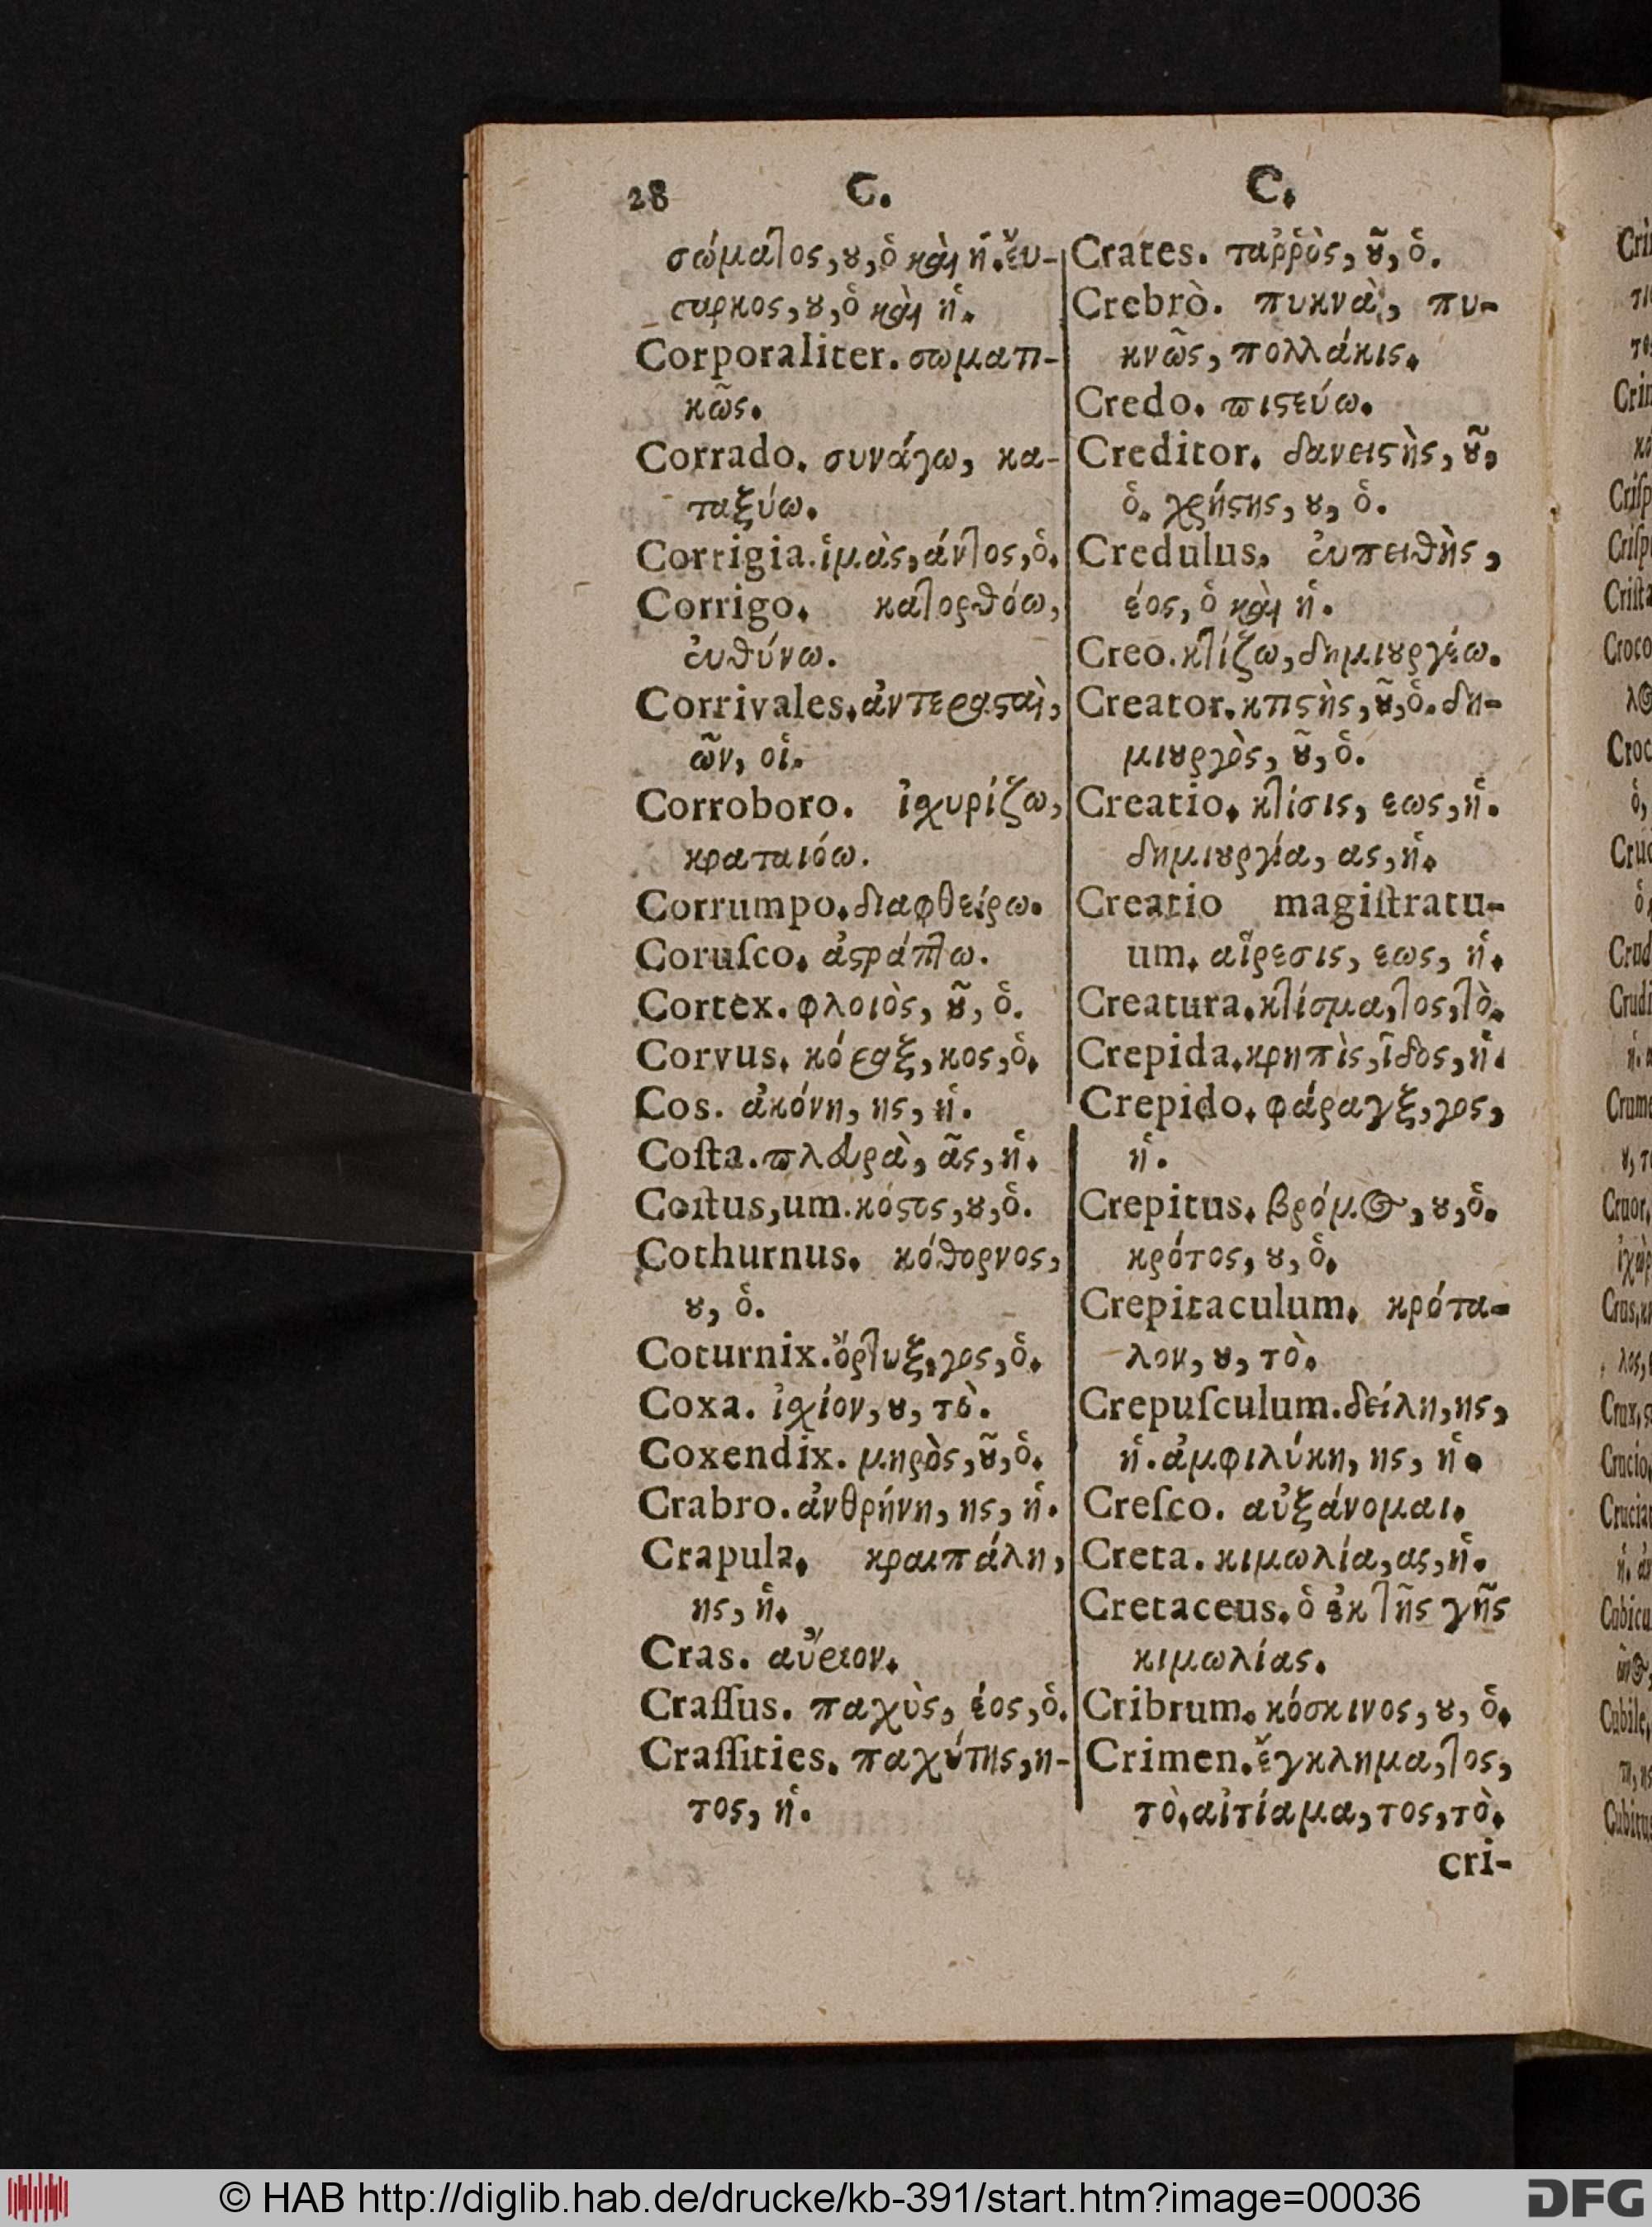 28 C. C.
σώμαTος, ȣ, ὁ καὶ ἡ. ἔυ-
σαρκος, ȣ, ὁ καὶ ἡ.
Corporaliter. σωματι-
κῶς.
Corrado. συνάγω, κα-
ταξύω.
Corrigia. ἱμὰς, άντος, ὁ.
Corrigo. κατορθόω,
ἐυθύνω.
Corrivales. ἀντεραϛαὶ,
ῶν, οἱ.
Corroboro. ἰχυρίζω,
κραταιόω.
Corrumpo. διαφθείρω.
Coruſco. ἀϛράπτω.
Cortex. φλοιὸς, ȣ͂, ὁ.
Corvus. κόραξ, κος, ὁ.
Cos. ἀκόνη, ης, ἡ.
Coſta. πλευρὰ, ᾶς, ἡ.
Coſtus, um. κόϛος, ȣ, ὁ.
Cothurnus. κόθορνος,
ȣ, ὁ.
Coturnix. ὄρτυξ, γος, ὁ.
Coxa. ἰχίον, ȣ, τὸ.
Coxendix. μηρὸς, ȣ͂, ὁ.
Crabro. ἀνθρήνη, ης, ἡ.
Crapula. κραιπάλη,
ης, ἡ.
Cras. αὔριον.
Craſſus. παχὺς, έος, ὁ.
Craſſities. παχύτης, η-
τος, ἡ.
Crates. ταῤῥὸς, ȣ͂, ὁ.
Crebrò. πυκνὰ, πυ-
κνῶς, πολλάκις.
Credo. πιϛεύω.
Creditor. δανειϛὴς, ȣ͂,
ὁ. χρήϛης, ȣ, ὁ.
Credulus. ἐυπειθὴς,
έος, ὁ καὶ ἡ.
Creo. κτίζω, δημιȣργέω.
Creator. κτιϛὴς, ȣ͂, ὁ. δη-
μιȣργὸς, ȣ͂, ὁ.
Creatio. κτίσις, εως, ἡ.
δημιȣργία, ας, ἡ.
Creatio magiſtratu-
um. αἵρεσις, εως, ἡ.
Creatura. κτίσμα, τος, τὸ.
Crepida. κρηπὶς, ῖδος, ἡ.
Crepido. φάραγξ, γος,
ἡ.
Crepitus. βρόμος, ȣ, ὁ.
κρότος, ȣ, ὁ.
Crepitaculum. κρότα-
λον, ȣ, τὸ.
Crepuſculum. δείλη, ης,
ἡ. ἀμφιλύκη, ης, ἡ.
Creſco. αὐξάνομαι.
Creta. κιμωλία, ας, ἡ.
Cretaceus. ὁ ἐκ τῆς γῆς
κιμωλίας.
Cribrum. κόσκινος, ȣ, ὁ.
Crimen. ἔγκλημα, τος,
τὸ. αἰτίαμα, τος, τὸ.
cri-
© HAB http://diglib.hab.de/drucke/kb-391/start.htm?image=00036
DFG